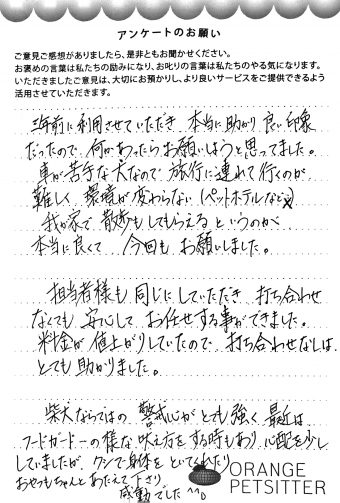 アンケートのお願い
ご意見ご感想がありましたら、是非ともお聞かせください。
お褒めの言葉は私たちの励みになり、お叱りの言葉は私たちのやる気になります。
いただきましたご意見は、大切にお預かりし、より良いサービスをご提供できるよう
活用させていただきます。
3年前に利用させていただき 本当に助かり 良い印象
だったので 何かあったらお願いしようと思ってました。
車が苦手な犬なので 旅行に連れて行くのが
難しく 環境が変わらない（ペットホテルなど）
我が家で 散歩もしてもらえる というのが
本当に良くて 今回も お願いしました。
担当者様も 同じにしていただき 打ち合わせ
なくても 安心して お任せする事ができました。
料金が 値上がりしていたので 打ち合わせなしは
とても助かりました。
柴犬ならではの 警戒心がとても強く 最近は
フードガードーの様な吠え方をする時もあり 心配を少し
していましたが クシで身体を といてくれたり
おやつもちゃんと あたえて下さり、
感動でした ^^
ORANGE
PETSITTER